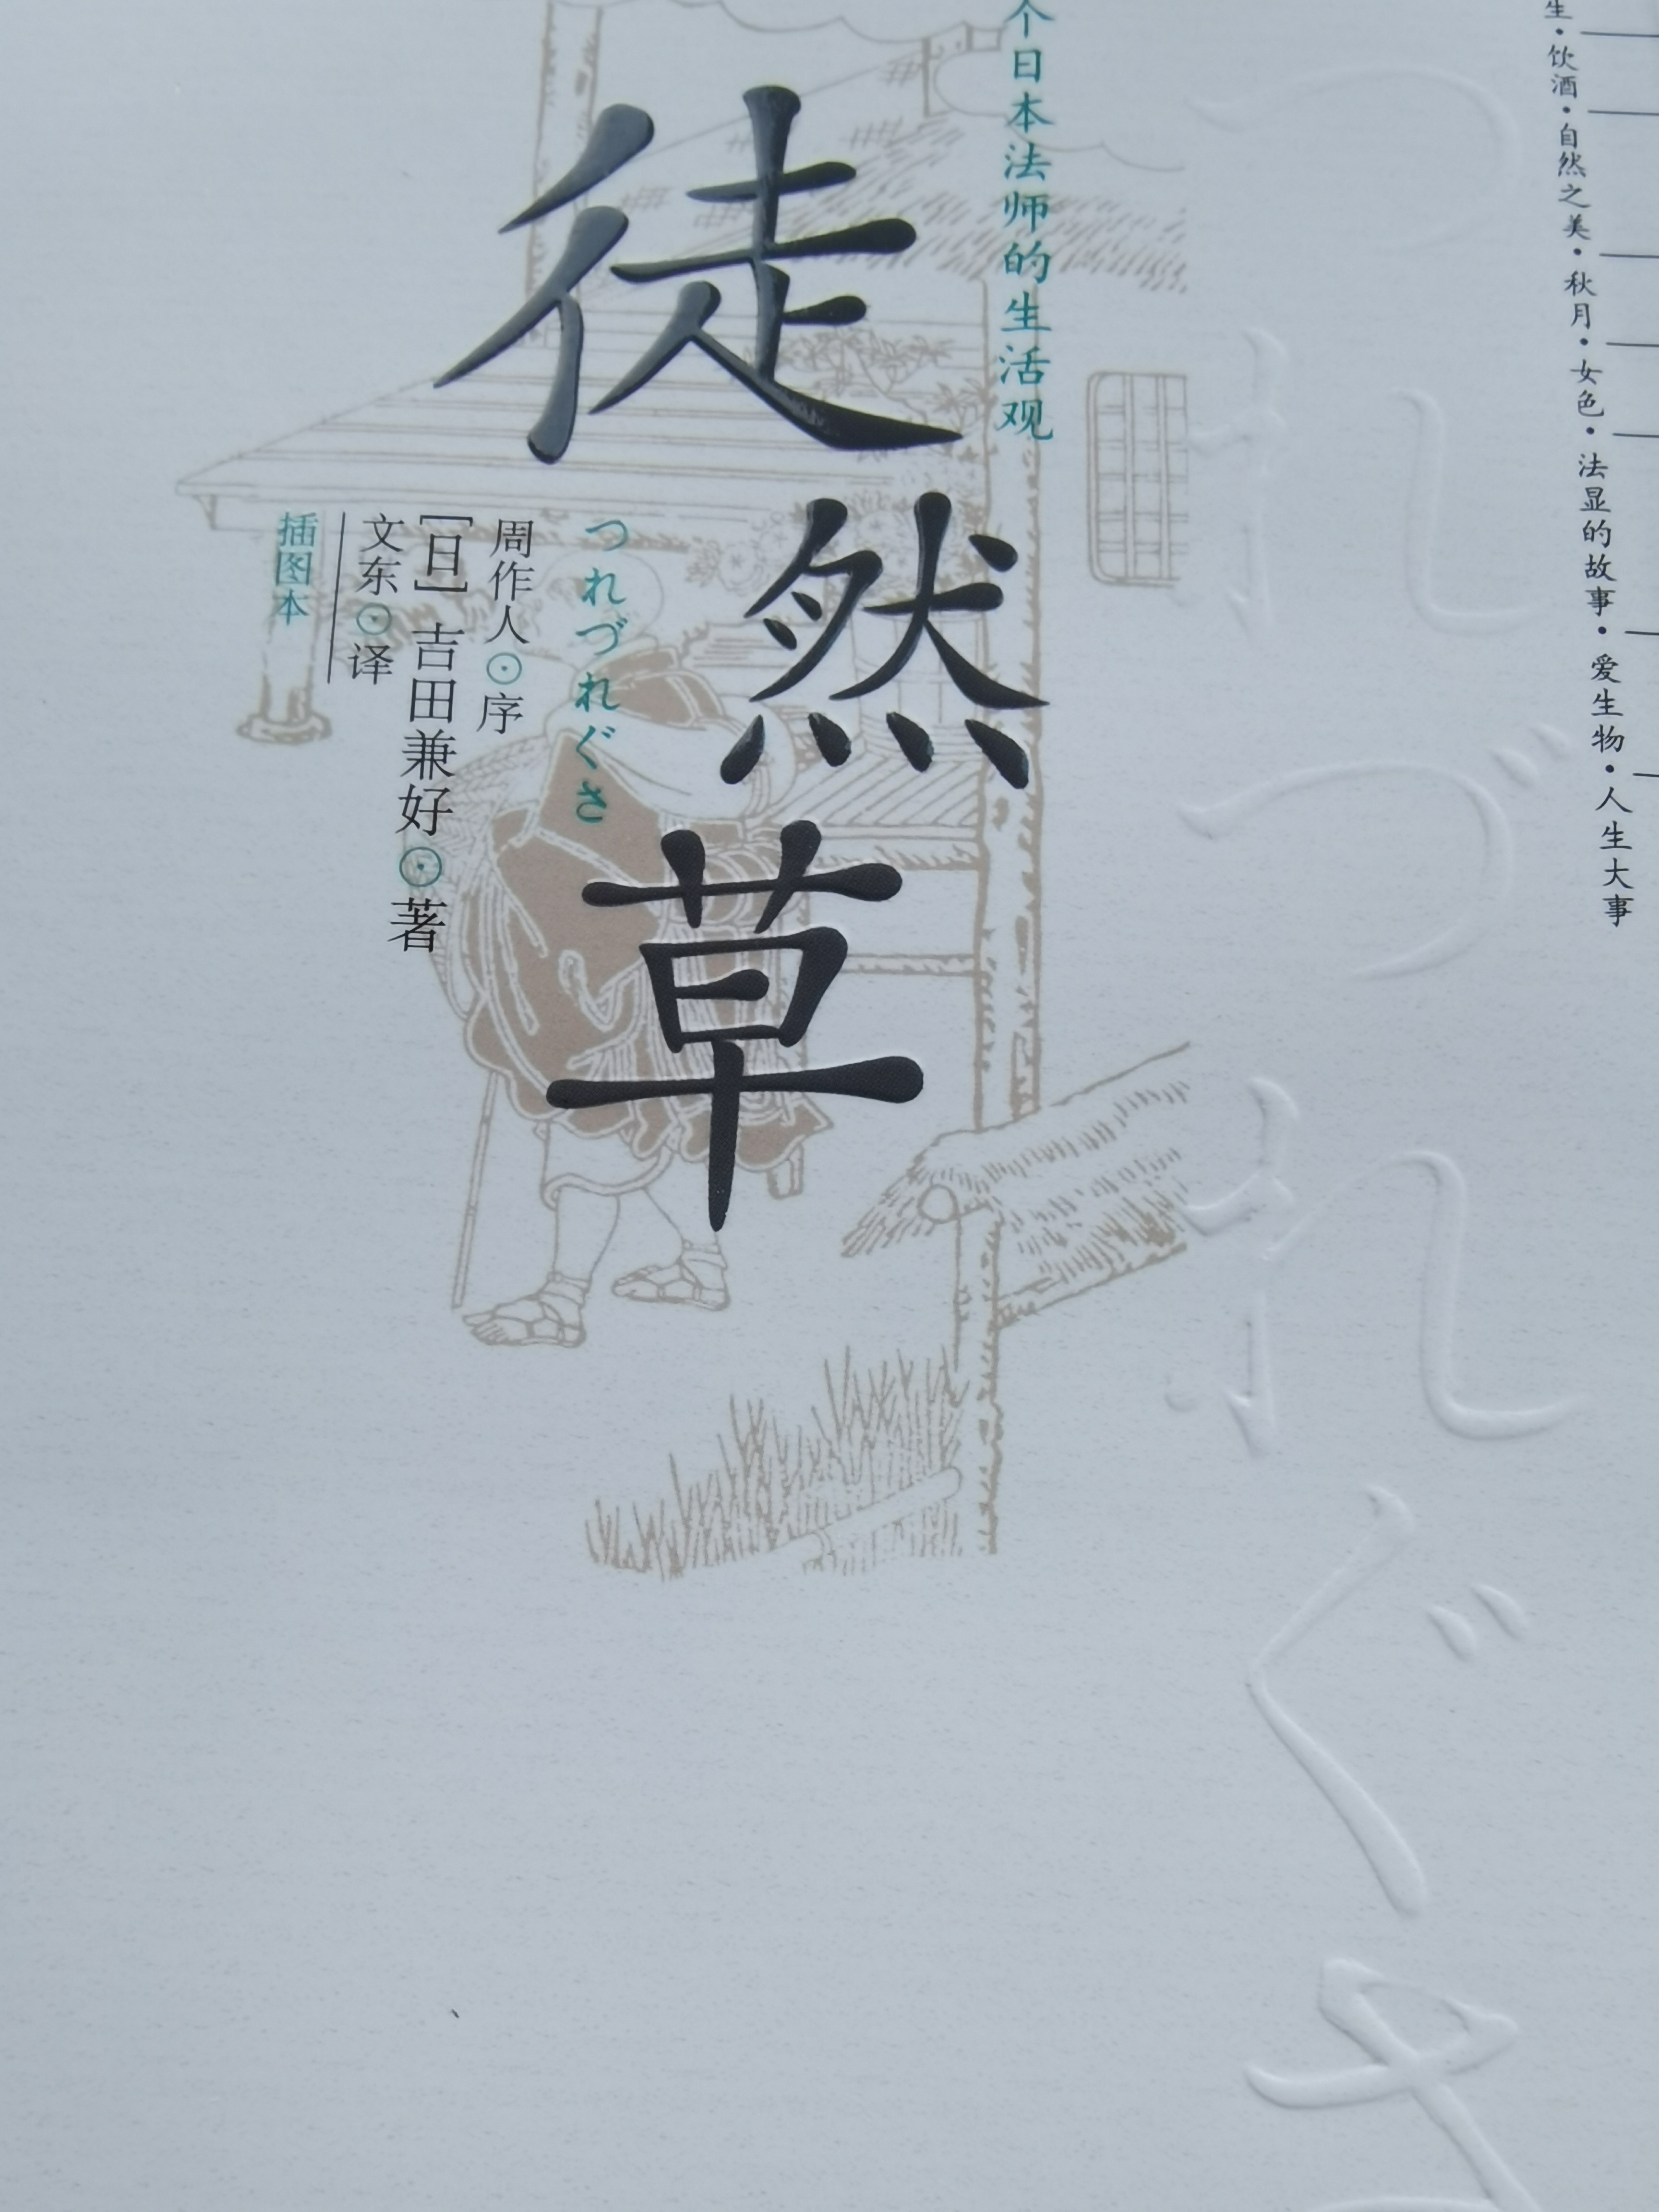 生·饮酒·自然之美·秋月·女色·法显的故事·爱生物·人生大事
つれづれぐさ
个日本法师的生活观
徒然草
つれづれぐさ
周作人⊙序
[日]吉田兼好⊙著
文东⊙译
插图本